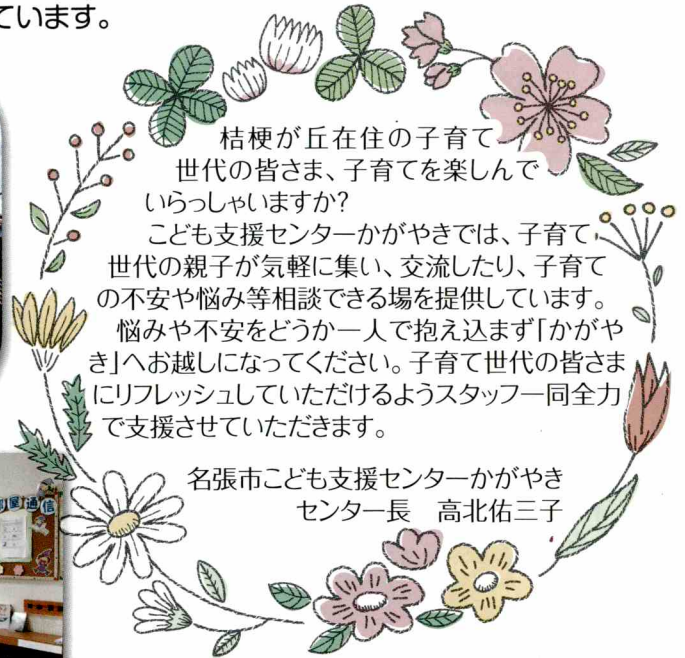 ています。
桔梗が丘在住の子育て
世代の皆さま、子育てを楽しんで
いらっしゃいますか?
こども支援センターかがやきでは、子育て
世代の親子が気軽に集い、交流したり、子育て
の不安や悩み等相談できる場を提供しています。
悩みや不安をどうか一人で抱え込まず「かがや
き」へお越しになってください。子育て世代の皆さま
にリフレッシュしていただけるようスタッフ一同全力
で支援させていただきます。
名張市こども支援センターかがやき
センター長 高北佑三子
屋通信